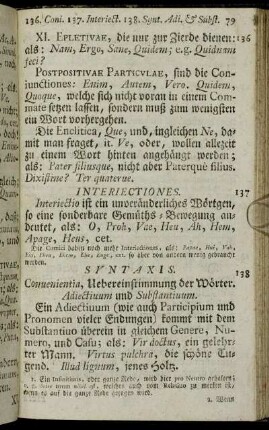 136. Coni. 137. Interiect. 138. Synt. Adi. & Subst. 79
XI. EPLETIVAE, die nur zur Zierde dienen: 136
als: Nam, Ergo, Sane, Quidem; e.g. Quidnam
feci?
POSTPOSITIVAE PARTICVLAE, sind die Con-
iunctiones: Enim, Autem, Vero, Quidem,
Quoque, welche sich nicht voran in einem Com-
mate setzen lassen, sondern muß zum wenigsten
ein Wort vorhergehen.
Die Enclitica, Que; und, ingleichen Ne, da-
mit man fraget, it. Ve, oder, wollen allezeit
zu einem Wort hinten angehängt werden;
als: Pater filiusque, nicht aber Paterque filius.
Dixistine? Ter quaterue.
INTERIECTIONES. 137
Interiectio ist ein unveränderliches Wörtgen,
so eine sonderbare Gemüths-Bewegung an-
deutet, als: O, Proh, Vae, Heu, Ah, Hem,
Apage, Heus, cet.
SYNTAXIS. 138
Conuenientia, Uebereinstimmung der Wörter.
Adiectiuum und Substantiuum.
Ein Adiectiuum (wie auch Participium und
Pronomen vieler Endungen) kommt mit dem
Substantiuo überein in gleichem Genere, Nu-
mero, und Casu; als: Vir doctus, ein gelehr-
ter Mann. Virtus pulchra, die schöne Tu-
gend. Illud lignum, jenes Holtz.